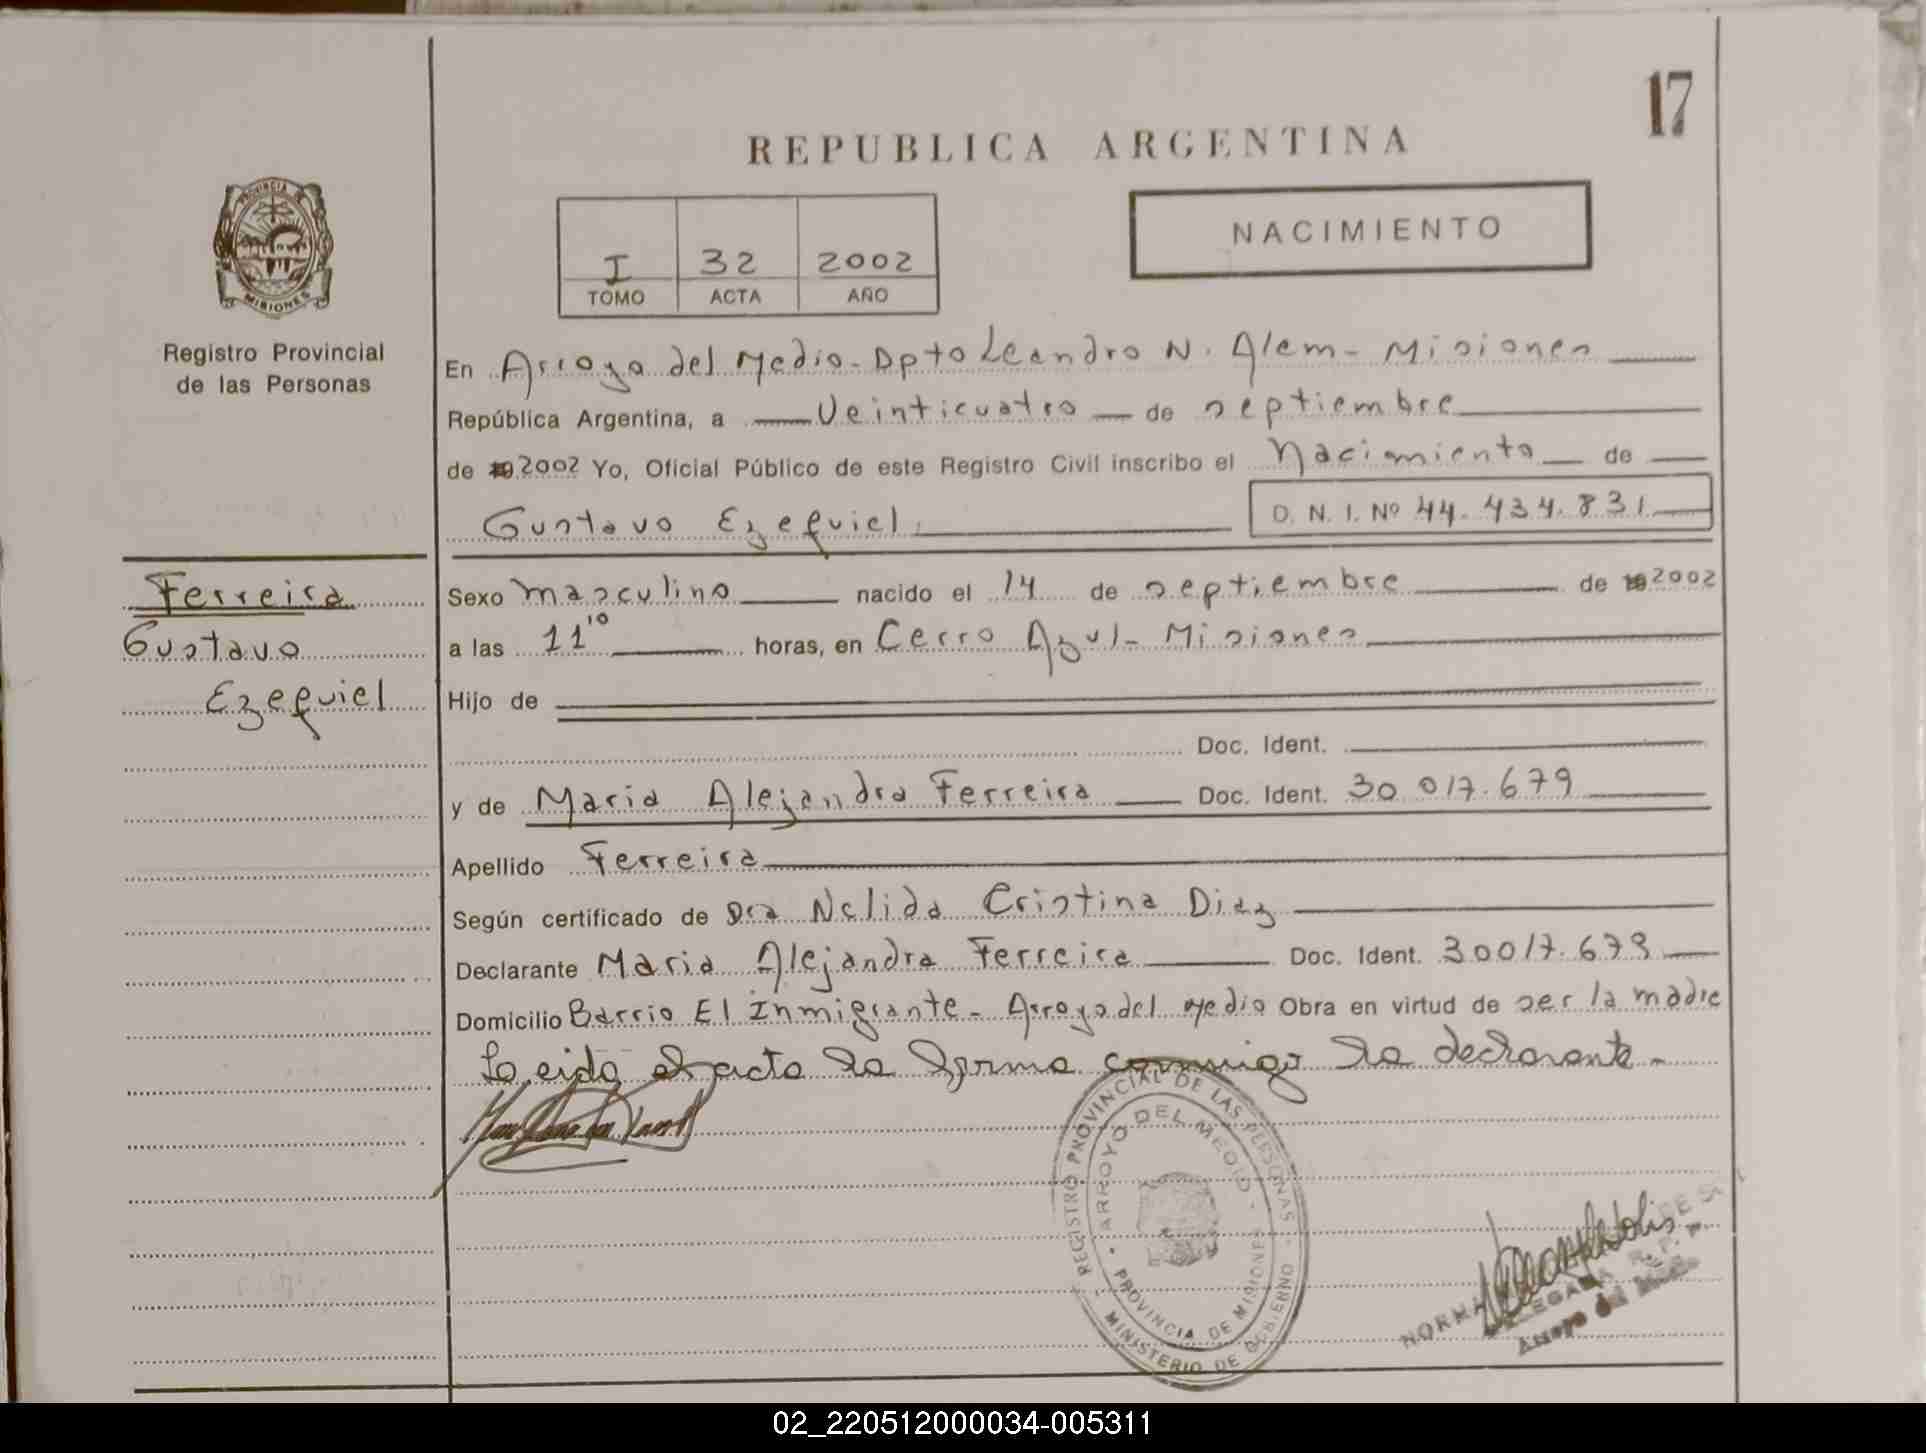 17
REPUBLICA ARGENTINA
NACIMIENTO
I 32 2002
TOMO ACTA AÑO
PROVINCIA DE
MISIONES
Registro Provincial
de las Personas
En Arroyo del Medio - Dpto Leandro N. Alem - Misiones
República Argentina, a Veinticuatro de septiembre
de 2002 Yo, Oficial Público de este Registro Civil inscribo el Nacimiento de
Gustavo Ezequiel
D. N. I. Nº 44.434.831
Ferreira
Gustavo
Ezequiel
Sexo masculino nacido el 14 de septiembre de 2002
a las 11'10 horas, en Cerro Azul - Misiones
Hijo de
Doc. Ident.
y de Maria Alejandra Ferreira Doc. Ident. 30 017.679
Apellido Ferreira
Según certificado de Dra Nelida Cristina Diaz
Declarante Maria Alejandra Ferreira Doc. Ident. 30017.679
Domicilio Barrio El Inmigrante - Arroyo del Medio Obra en virtud de ser la madre
Leida el acta la firma conmigo la declarante -
REGISTRO PROVINCIAL DE LAS PERSONAS
MINISTERIO DE GOBIERNO
ARROYO DEL MEDIO
PROVINCIA DE MISIONES
NORMA
Arroyo del
02_220512000034-005311